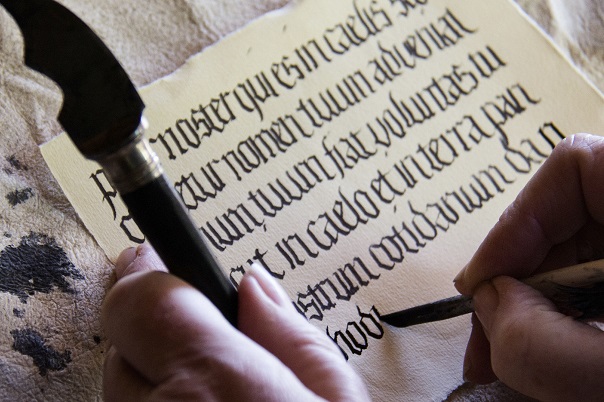 noster qui es in caelis
etur nomen tuum adveniat
tuum fiat voluntas tu
ut in caelo et in terra pan
ostrum cotidianum da n
hodi